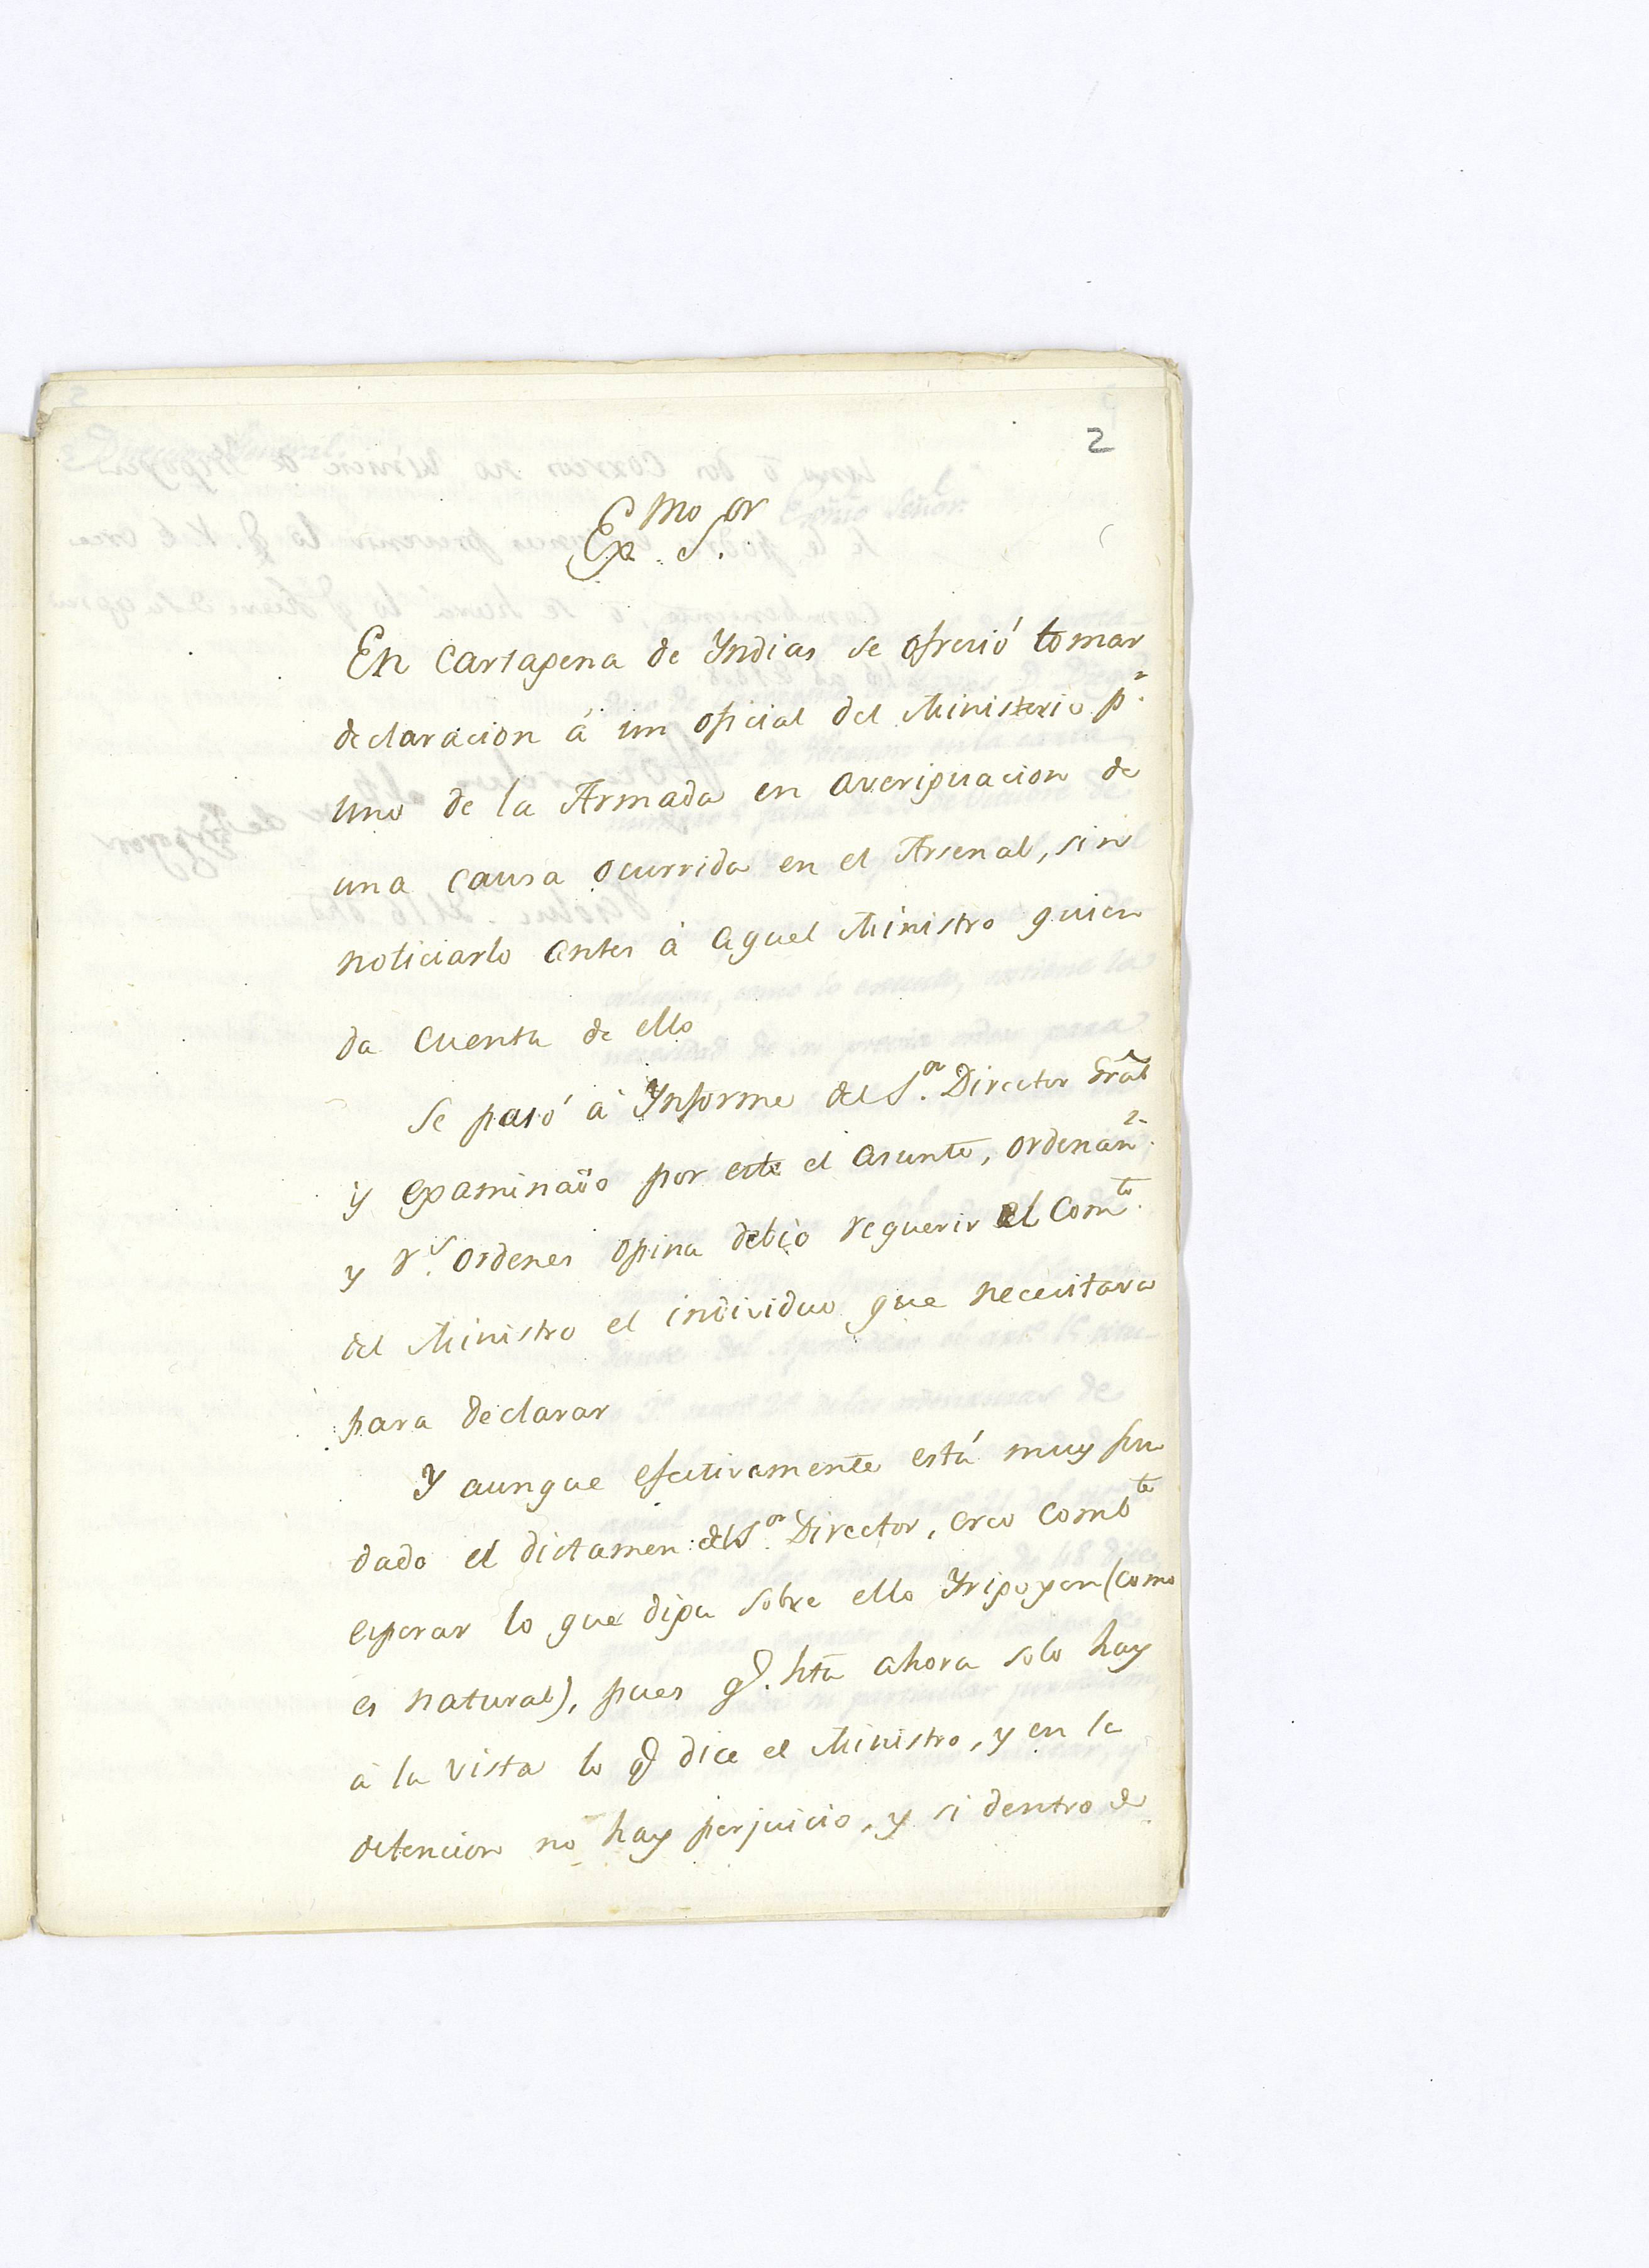 2
Exmo Sor.
En Cartagena de Yndias se ofreció tomar
declaracion á un oficial del Ministerio pr.
uno de la Armada en averiguacion de
una causa ocurrida en el Arsenal, sin
noticiarlo antes á aquel Ministro quien
da cuenta de ello
Se pasó á Ynforme del Sor. Director Gral
y examinado por este el asunto, ordenanz.
y rs. ordenes opina debió requerir el Comte.
del Ministro el individuo que necesitara
para declarar
Y aunque efectivamente está muy fun
dado el dictamen del Sor. Director, creo combte
esperar lo que diga sobre ello Yrigoyen (como
es natural), pues q. hta ahora solo hay
á la vista lo q dice el Ministro, y en la
detencion no hay perjuicio, y si dentro de